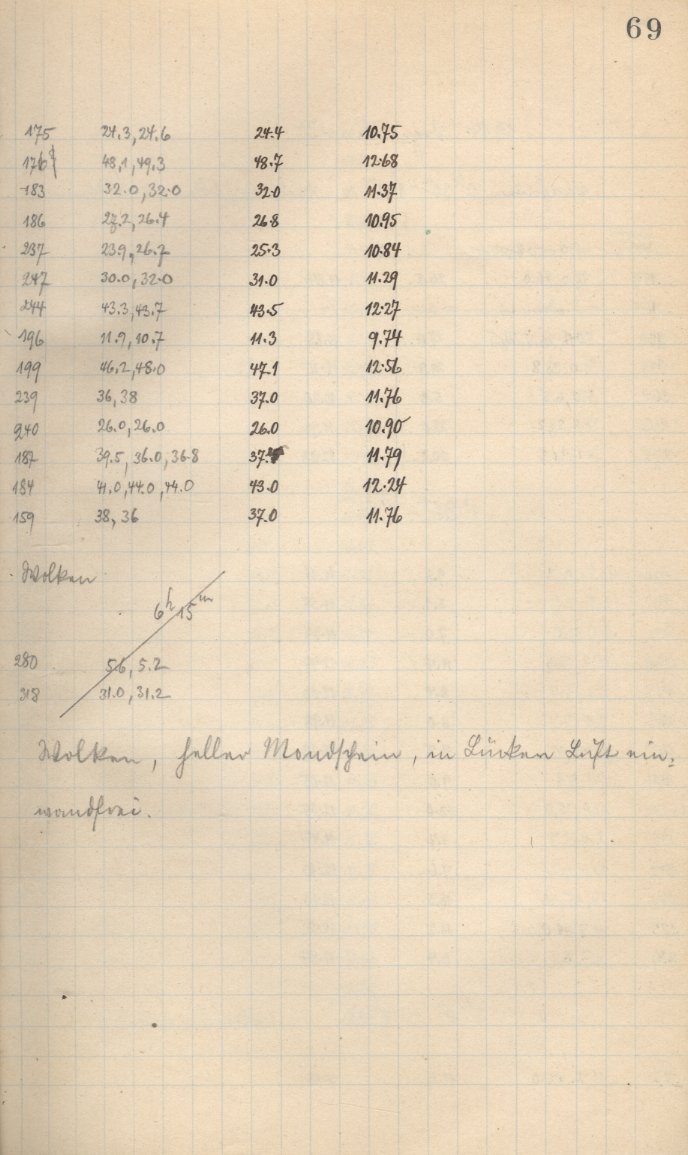 69
175 24.3, 24.6 24.4 10.75
176 48,1, 49.3 48.7 12.68
183 32.0, 32.0 32.0 11.37
186 27.2, 26.4 26.8 10.95
237 23.9, 26.7 25.3 10.84
247 30.0, 32.0 31.0 11.29
244 43.3, 43.7 43.5 12.27
196 11.9, 10.7 11.3 9.74
199 46.2, 48.0 47.1 12.56
239 36, 38 37.0 11.76
240 26.0, 26.0 26.0 10.90
187 39.5, 36.0, 36.8 37. 11.79
184 41.0, 44.0, 44.0 43.0 12.24
159 38, 36 37.0 11.76
Wolken
6h 15m
280 5.6, 5.2
318 31.0, 31.2
Wolken, heller Mondschein, in Lücken Luft ein-
wandfrei.